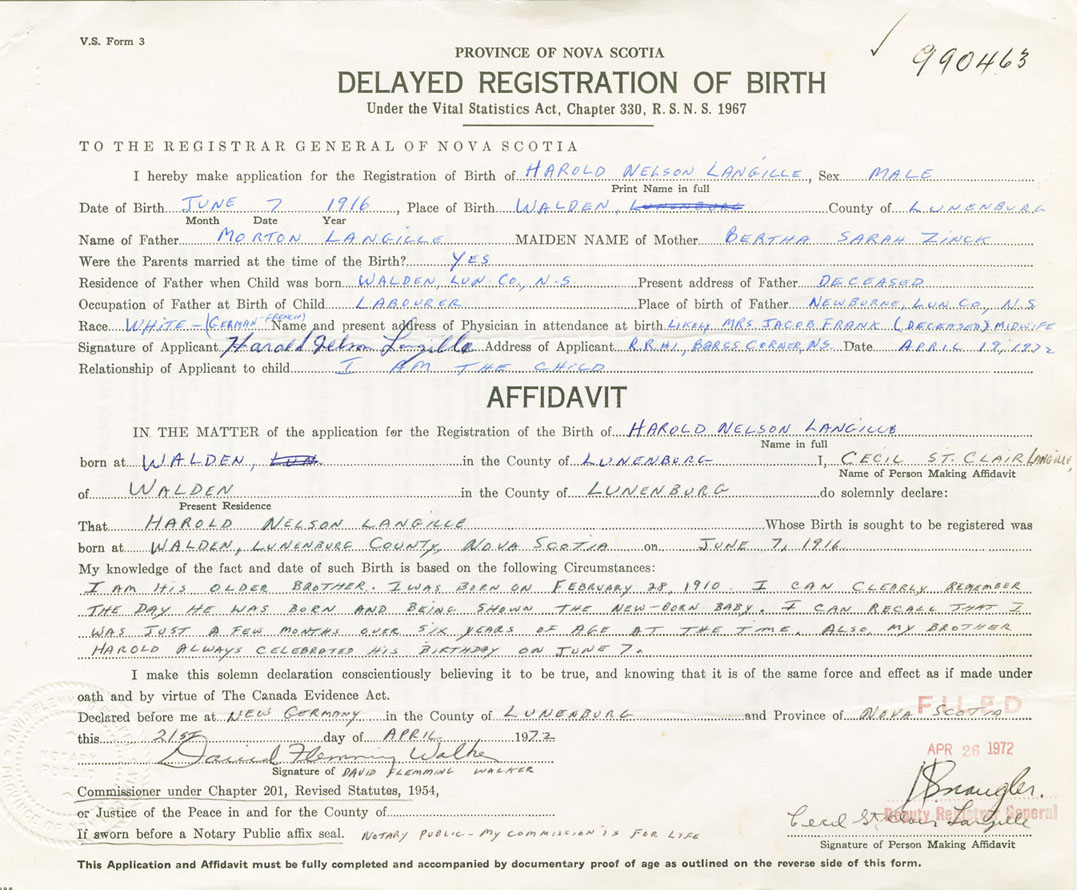 V.S. Form 3
990463
PROVINCE OF NOVA SCOTIA
DELAYED REGISTRATION OF BIRTH
Under the Vital Statistics Act, Chapter 330, R.S.N.S. 1967
TO THE REGISTRAR GENERAL OF NOVA SCOTIA
I hereby make application for the Registration of Birth of HAROLD NELSON LANGILLE, Sex MALE
Print Name in full
Date of Birth JUNE 7 1916, Place of Birth WALDEN, LUNENBURG County of LUNENBURG
Month Date Year
Name of Father MORTON LANGILLE MAIDEN NAME of Mother BERTHA SARAH ZINCK
Were the Parents married at the time of the Birth? YES
Residence of Father when Child was born WALDEN, LUN. CO., N.S. Present address of Father DECEASED
Occupation of Father at Birth of Child LABOURER Place of birth of Father NEWBURNE, LUN. CO., N.S
Race WHITE - (GERMAN-FRENCH) Name and present address of Physician in attendance at birth LIKELY MRS. JACOB FRANK (DECEASED) MIDWIFE
Signature of Applicant Harold Nelson Langille Address of Applicant R.R#1, BARSS CORNER, NS. Date APRIL 19, 1972
Relationship of Applicant to child I AM THE CHILD
AFFIDAVIT
IN THE MATTER of the application for the Registration of the Birth of HAROLD NELSON LANGILLE
Name in full
born at WALDEN, LUN. in the County of LUNENBURG I, CECIL ST. CLAIR LANGILLE,
Name of Person Making Affidavit
of WALDEN in the County of LUNENBURG do solemnly declare:
Present Residence
That HAROLD NELSON LANGILLE Whose Birth is sought to be registered was
born at WALDEN, LUNENBURG COUNTY, NOVA SCOTIA on JUNE 7, 1916.
My knowledge of the fact and date of such Birth is based on the following Circumstances:
I AM HIS OLDER BROTHER. I WAS BORN ON FEBRUARY 28, 1910 I CAN CLEARLY REMEMBER
THE DAY HE WAS BORN AND BEING SHOWN THE NEW-BORN BABY. I CAN RECALL THAT I
WAS JUST A FEW MONTHS OVER SIX YEARS OF AGE AT THE TIME. ALSO, MY BROTHER
HAROLD ALWAYS CELEBRATED HIS BIRTHDAY ON JUNE 7.
I make this solemn declaration conscientiously believing it to be true, and knowing that it is of the same force and effect as if made under
oath and by virtue of The Canada Evidence Act.
FILED
Declared before me at NEW GERMANY in the County of LUNENBURG and Province of NOVA SCOTIA
this 21ST day of APRIL 1972
APR 26 1972
David Flemming Walker
Signature of DAVID FLEMMING WALKER
Commissioner under Chapter 201, Revised Statutes, 1954,
or Justice of the Peace in and for the County of
Deputy Registrar General
Cecil St. Clair Langille
If sworn before a Notary Public affix seal. NOTARY PUBLIC - MY COMMISSION IS FOR LIFE
Signature of Person Making Affidavit
This Application and Affidavit must be fully completed and accompanied by documentary proof of age as outlined on the reverse side of this form.